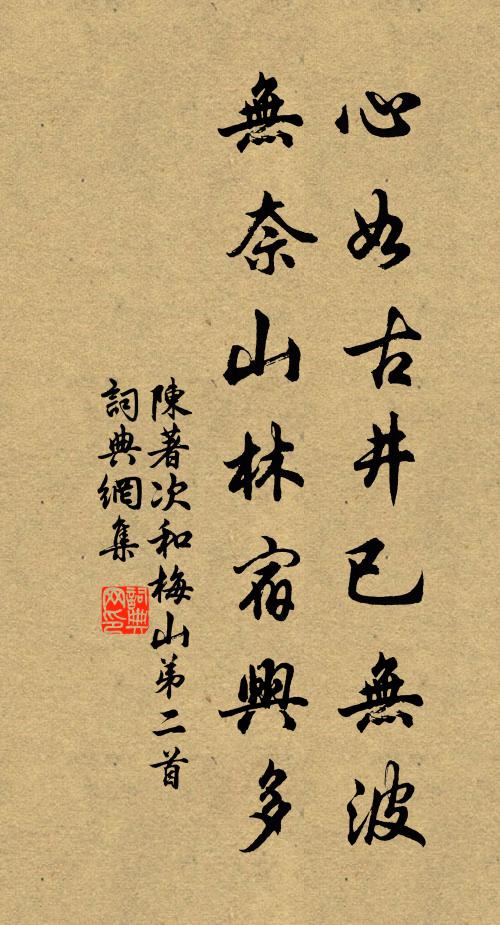 心如古井已無波
無奈山林宿興多
陳著次和梅山弟二首
詞典網集
詞典
网印